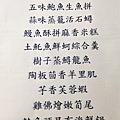 五味鮑魚生魚拼
蒜味蒸龍活石鱘
鰻魚酥拼麻香米糕
土魠魚鮮蚵綜合羹
樹子蒸鱘龍魚
陶板茴香羊里肌
芋香芙蓉蝦
雞佛燴嫩筍尾